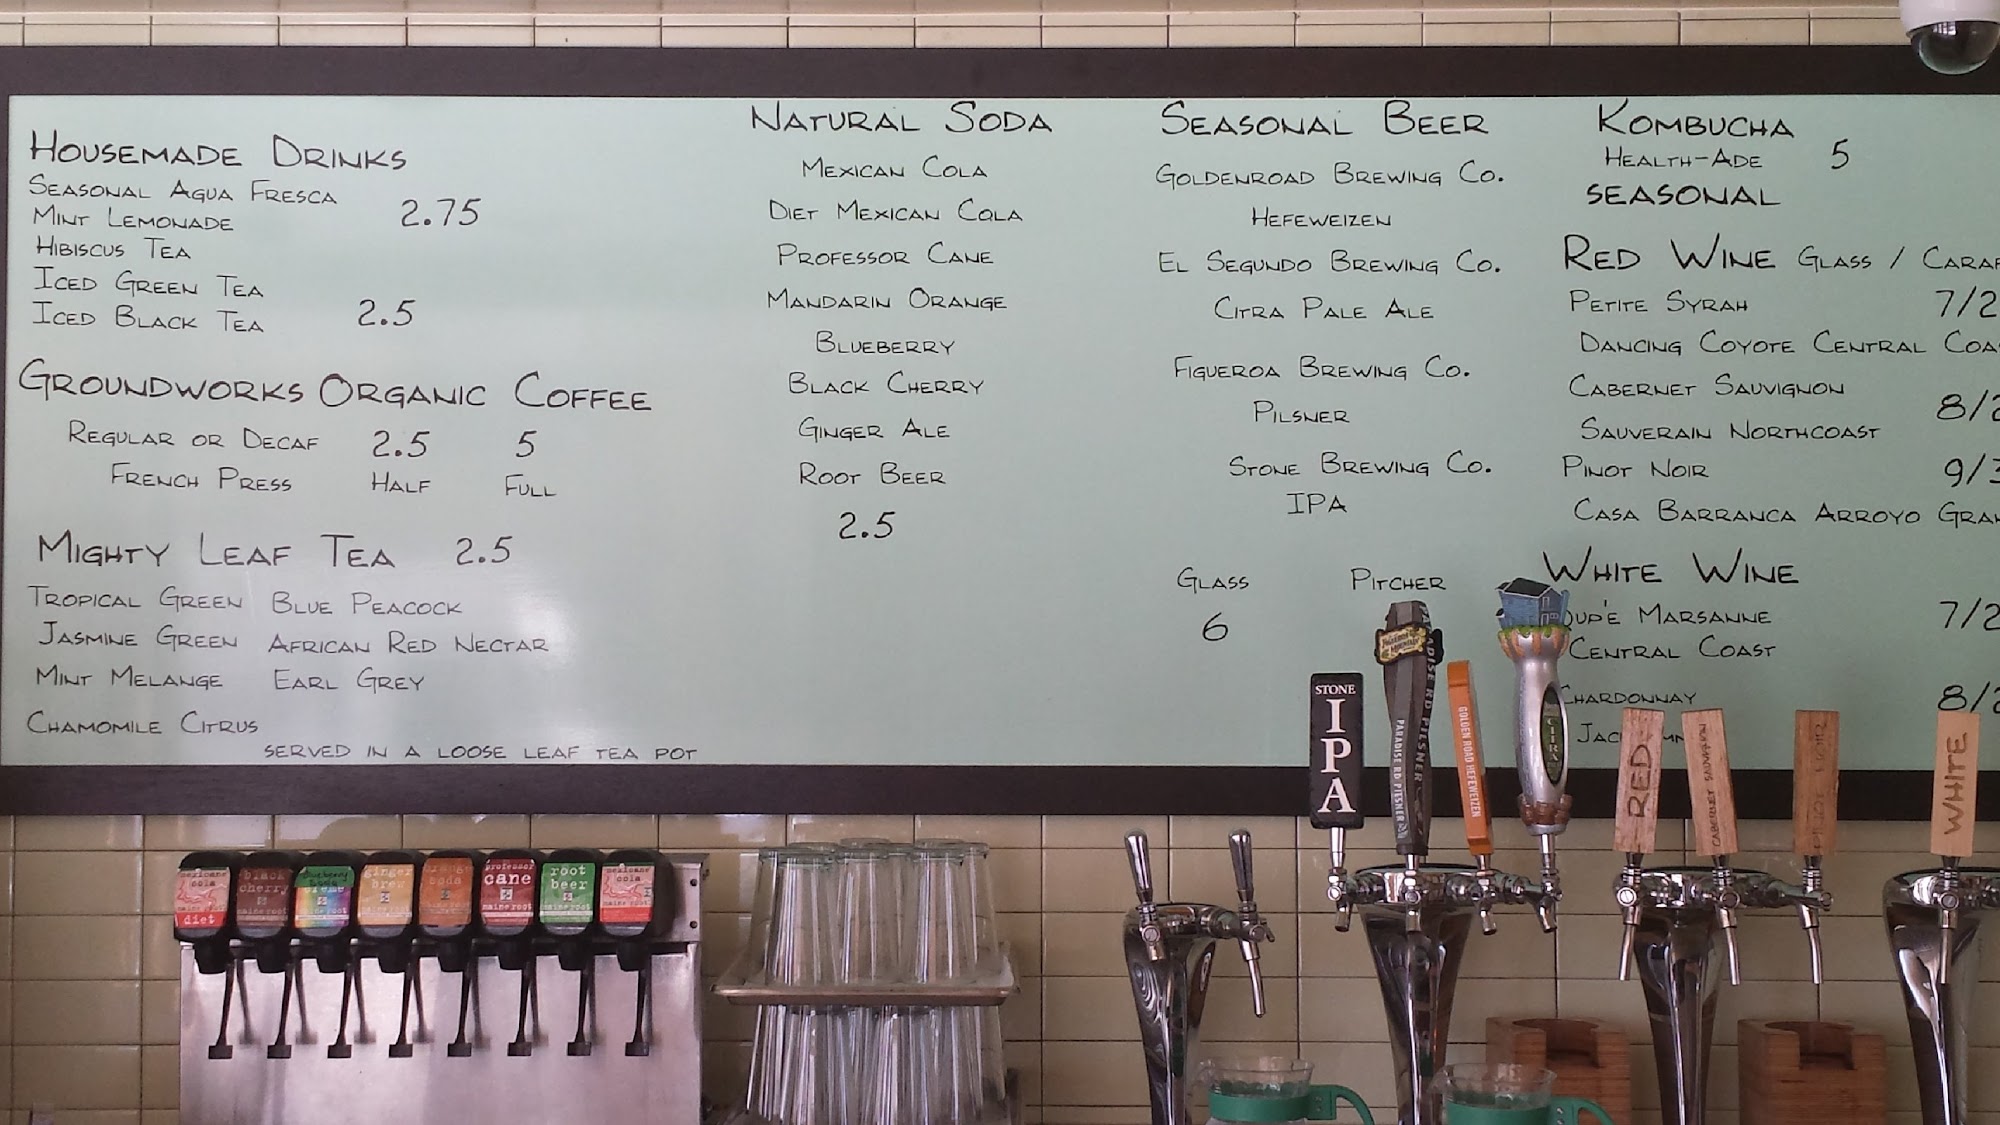 Housemade Drinks
Seasonal Agua Fresca
Mint Lemonade 2.75
Hibiscus Tea
Iced Green Tea
Iced Black Tea 2.5
Groundworks Organic Coffee
Regular or Decaf 2.5 5
French Press Half Full
Mighty Leaf Tea 2.5
Tropical Green Blue Peacock
Jasmine Green African Red Nectar
Mint Melange Earl Grey
Chamomile Citrus
served in a loose leaf tea pot
Natural Soda
Mexican Cola
Diet Mexican Cola
Professor Cane
Mandarin Orange
Blueberry
Black Cherry
Ginger Ale
Root Beer
2.5
Seasonal Beer
Goldenroad Brewing Co.
Hefeweizen
El Segundo Brewing Co.
Citra Pale Ale
Figueroa Brewing Co.
Pilsner
Stone Brewing Co.
IPA
Glass Pitcher
6
Kombucha
Health-Ade 5
seasonal
Red Wine Glass /
Petite Syrah 7/2
Dancing Coyote Central
Cabernet Sauvignon 8/2
Sauverain Northcoast
Pinot Noir 9/3
Casa Barranca Arroyo
White Wine
Marsanne 7/2
Central Coast
Chardonnay 8/2
STONE
IPA
PARADISE RD PILSNER
PARADISE RD PILSNER
GOLDEN ROAD HEFEWEIZEN
CITRA
RED
CABERNET SAUVIGNON
PINOT NOIR
WHITE
mexicane cola
maine root
diet
black cherry
maine root
blueberry soda
creme
maine root
ginger brew
maine root
orange soda
maine root
professor cane
maine root
root beer
maine root
mexicane cola
maine root